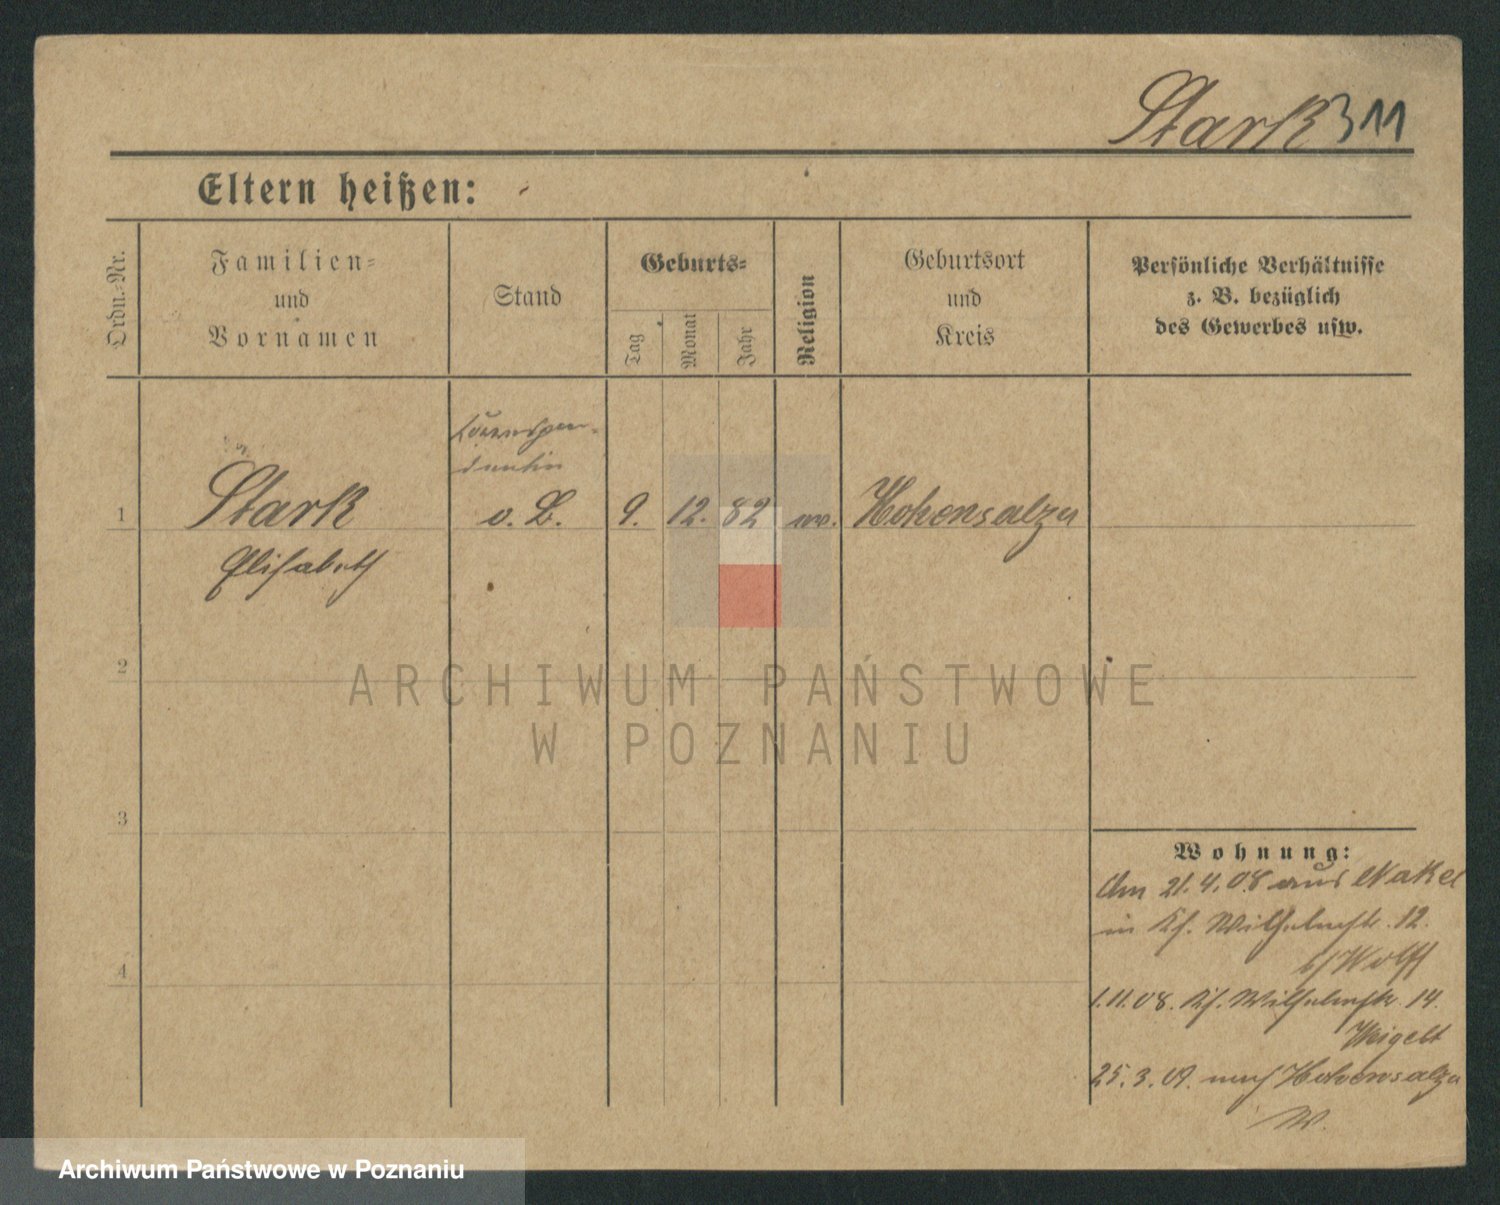 Stark 311
Eltern heißen:
Ordn.-Nr.
Familien-
und
Vornamen
Stand
Geburts-
Tag
Monat
Jahr
Religion
Geburtsort
und
Kreis
Persönliche Verhältnisse
z. B. bezüglich
des Gewerbes usw.
Korrespon-
dentin
1 Stark o. B. 9. 12. 82 ev. Hohensalza
Elisabeth
2
3
4
Wohnung:
Am 21.4.08 aus Nakel
in Kf. Wilhelmstr. 12.
b/ Wolff
1.11.08. Kf. Wilhelmstr. 14.
Weigelt
25.3.09. nach Hohensalza
W.
ARCHIWUM PAŃSTWOWE
W POZNANIU
Archiwum Państwowe w Poznaniu